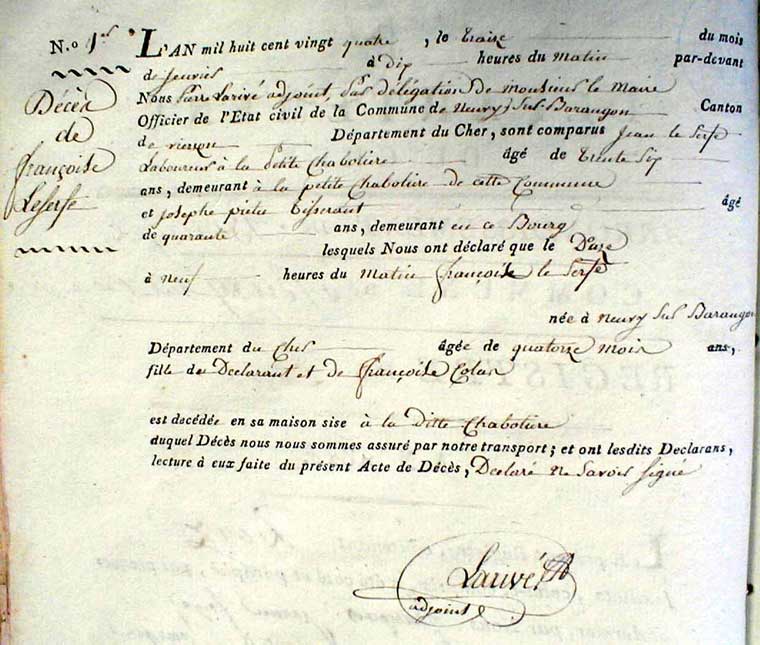 N.o 1er
Décès
de
françoise
Leserfe
L'AN mil huit cent vingt quatre, le traize du mois
de jenvier à dix heures du Matin par-devant
Nous pierre Larivé adjoint, par délégation de monsieur le Maire
Officier de l'Etat civil de la Commune de neuvy sur Barangon Canton
de vierzon Département du Cher, sont comparus jean le Serfe
Laboureur à la petite Chabotiere âgé de trente six
ans, demeurant à la petite Chabotiere de cette Commune
et josephe tisserant âgé
de quarante ans, demeurant en ce Bourg
lesquels Nous ont déclaré que le Duze
à neuf heures du Matin françoise le Serfe
née à neuvy sur Barangon
Département du Cher âgée de quatorze mois ans,
fille du Declarant et de françoise Colas
est decédée en sa maison sise à la ditte Chabotiere
duquel Décès nous nous sommes assuré par notre transport; et ont lesdits Declarans,
lecture à eux faite du présent Acte de Décès, Declaré ne Savoir signé
Larivé
adjoint